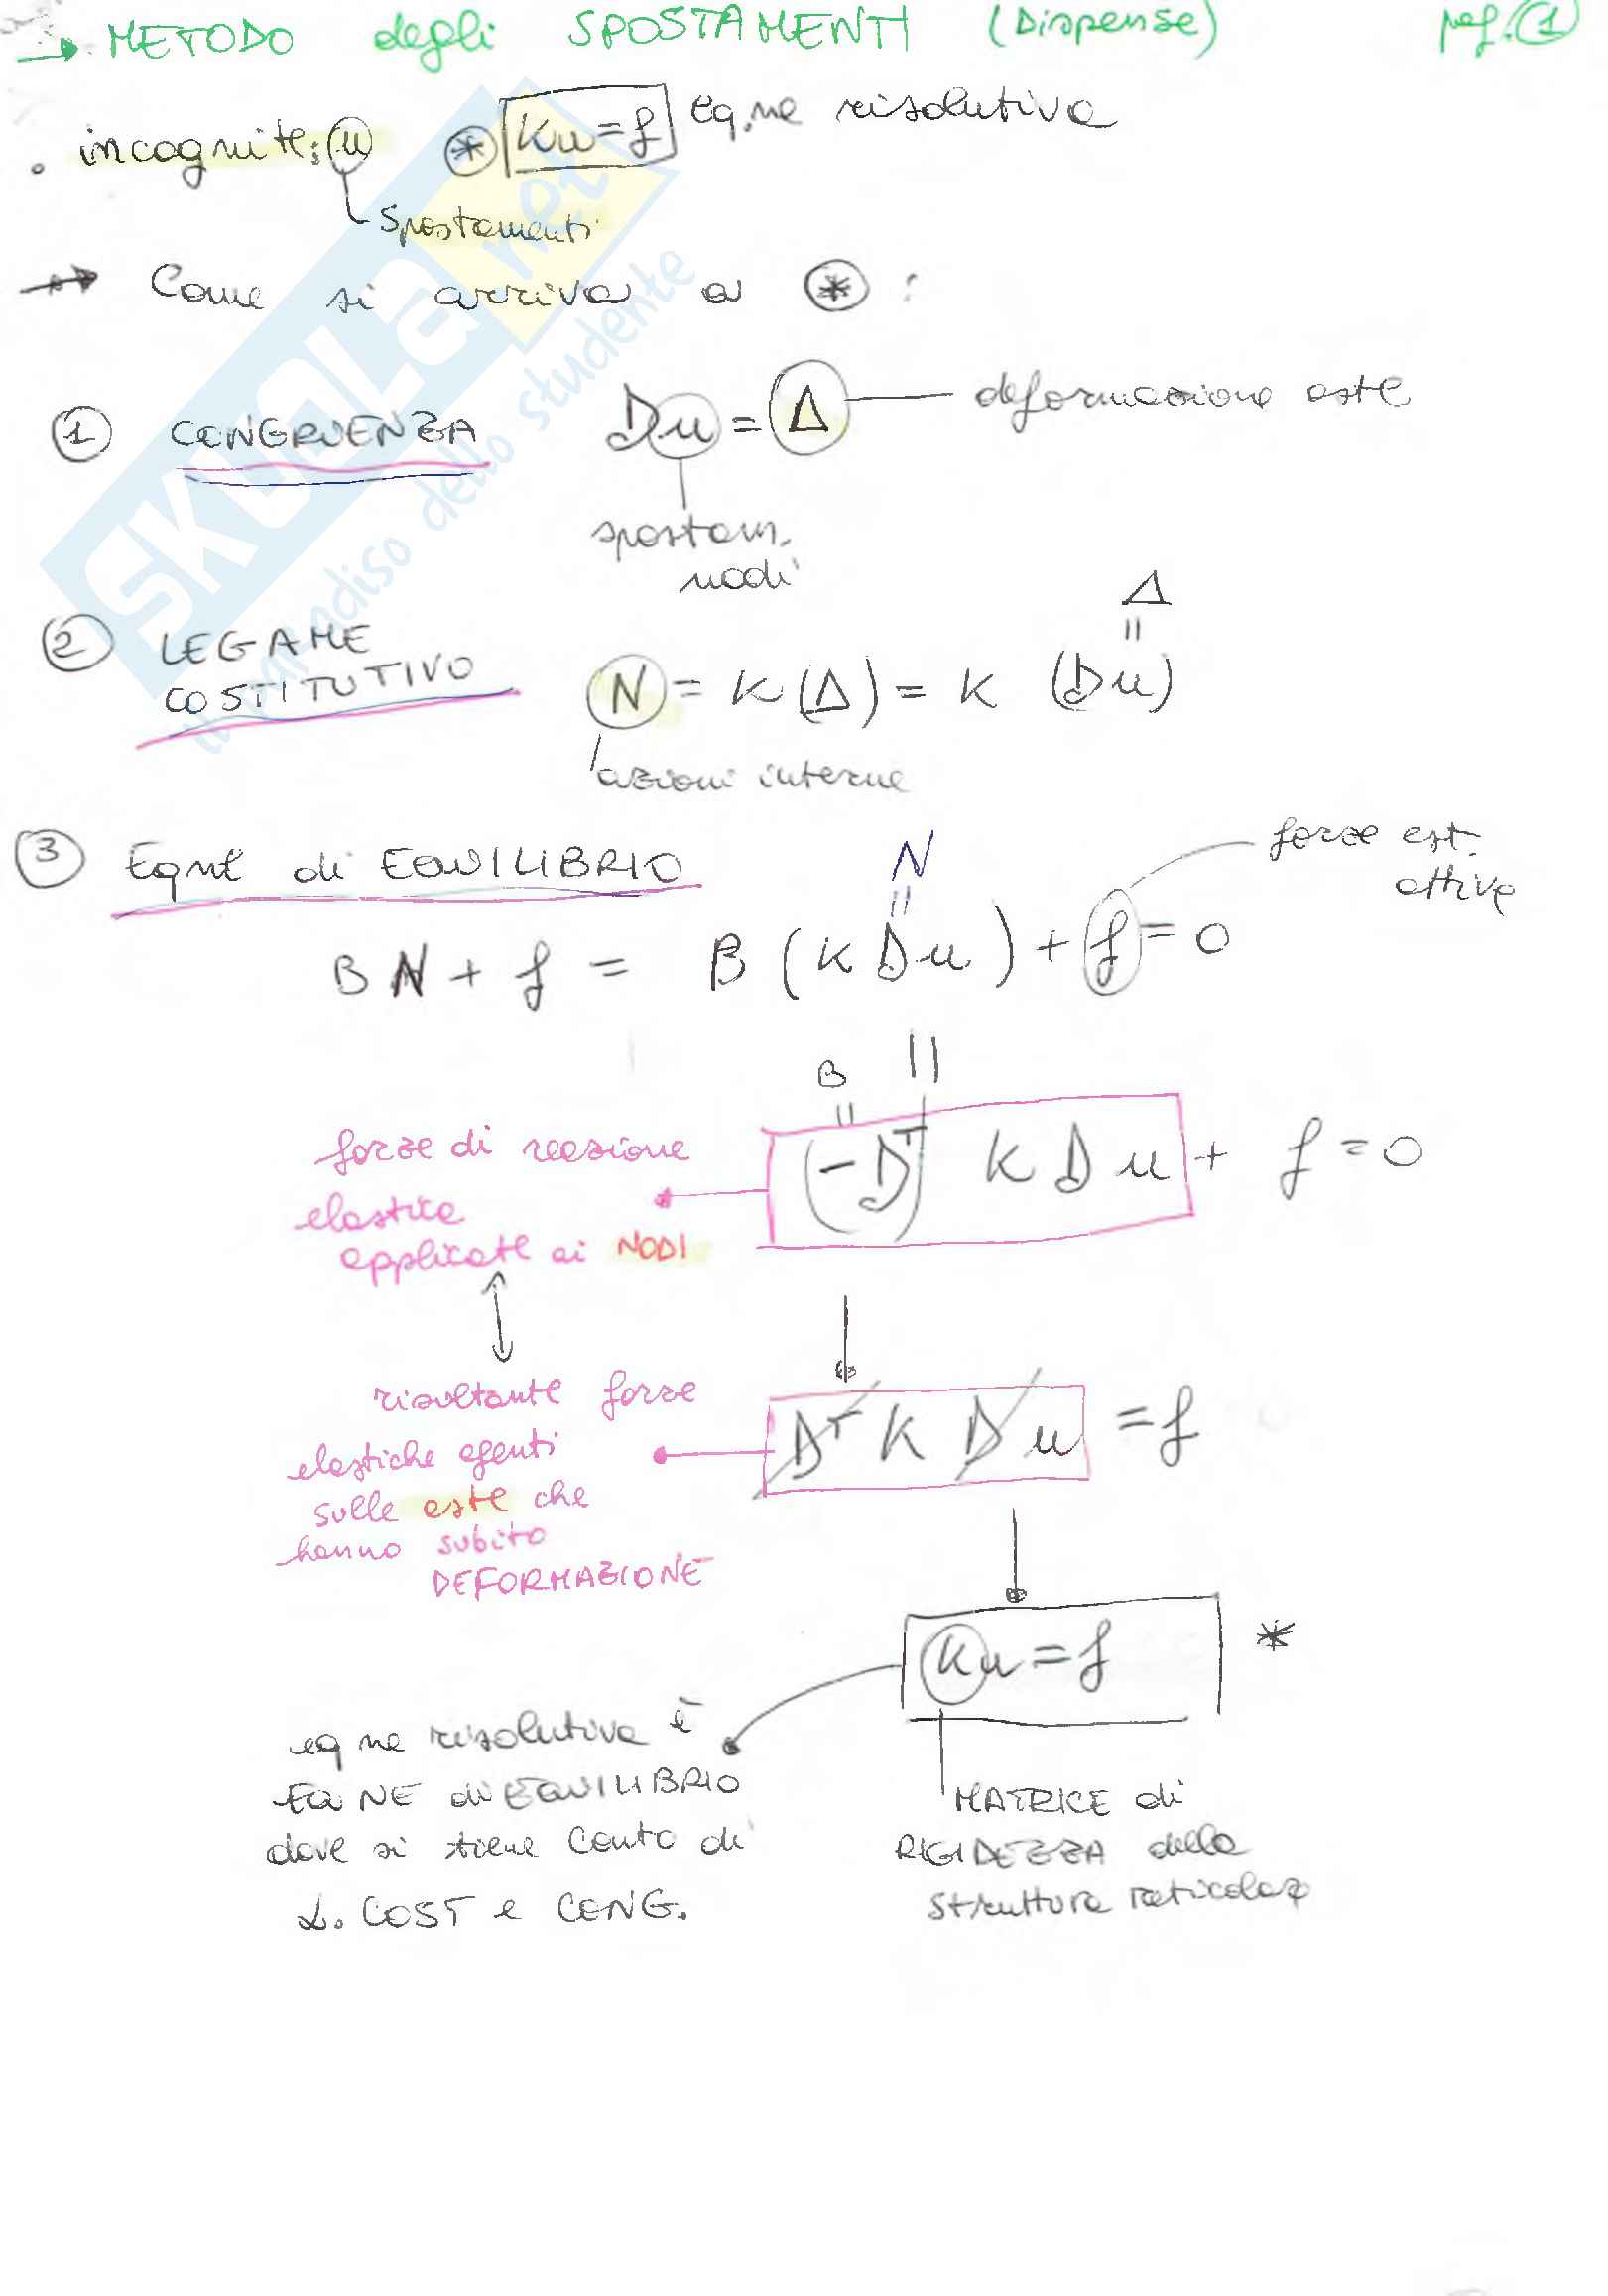 → METODO degli SPOSTAMENTI (Dispense) pag. 1
. incognite: u * Ku = f eq.ne risolutiva
Spostamenti
→ Come si arriva a * :
1 CONGRUENZA Du = Δ deformazione aste
spostam.
nodi
2 LEGAME
COSTITUTIVO
Δ
=
N = K (Δ) = K (Du)
azioni interne
3 Eqne di EQUILIBRIO
N
=
forze est.
attive
BN + f = B (K Du) + f = 0
B
=
=
(-Dᵀ) K D u + f = 0
forze di reazione
elastica
applicate ai NODI
Dᵀ K D u = f
risultante forze
elastiche agenti
sulle aste che
hanno subito
DEFORMAZIONE
Ku = f *
eq ne risolutiva è
EQ NE di EQUILIBRIO
dove si tiene conto di
L. COST e CONG.
MATRICE di
RIGIDEZZA della
struttura reticolare
SKUOLA.net
il paradiso dello studente